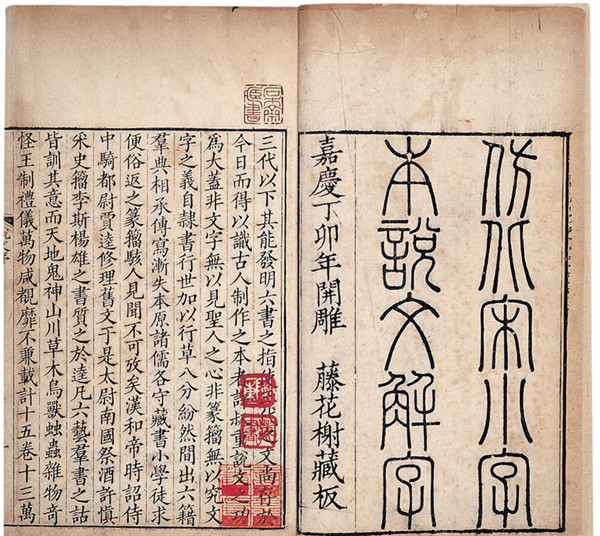 仿北宋小字
本說文解字
嘉慶丁卯年開雕 藤花榭藏板
三代以下其能發明六書之指使三代之文尚存於
今日而得以識古人制作之本者許叔重說文之功
爲大蓋非文字無以見聖人之心非篆籀無以究文
字之義自隸書行世加以行草八分紛然間出六籍
羣典相承傳寫漸失本原諸儒各守藏書小學徒求
便俗返之篆籀駭人見聞不可攷矣漢和帝時詔侍
中騎都尉賈逵修理舊文于是太尉南國祭酒許慎
采史籀李斯楊雄之書質之於逵凡六藝羣書之詁
皆訓其意而天地鬼神山川草木鳥獸蟲蟲雜物奇
怪王制禮儀萬物咸覩靡不兼載計十五卷十三萬